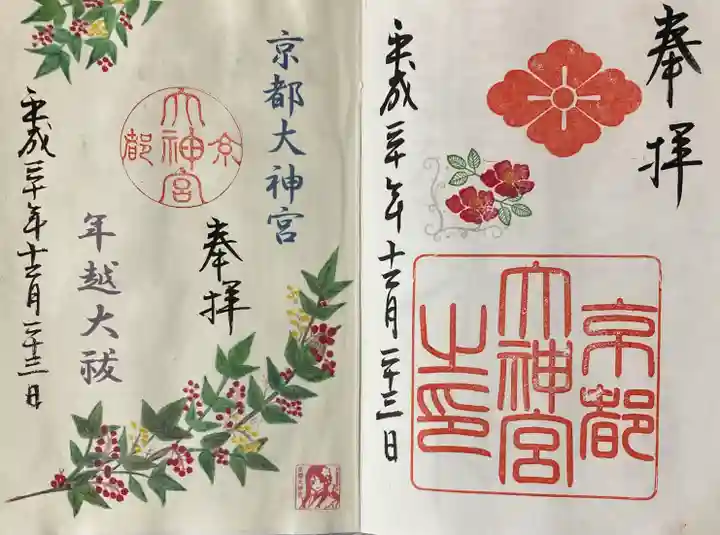 奉拝
京都
大神宮
之印
平成三十年十二月二十三日
京都大神宮
奉拝
京
大神宮
都
年越大祓
平成三十年十二月二十三日
京都大神宮